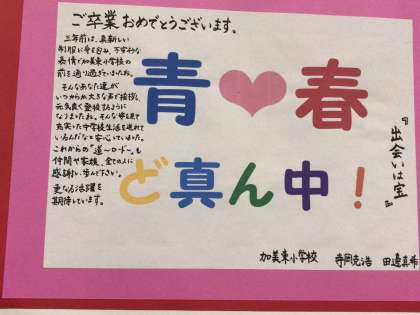 ご卒業おめでとうございます。
三年前は、真新しい
制服に身を包み、不安そうな
表情で加美東小学校の
前を通り過ぎていましたね。
そんなあなた達が
いつからか大きな声で挨拶し
元気良く登校するように
なりましたね。そんな姿を見て
充実した中学校生活を送れて
いるんだなと安心していました。
これからの"道〜ロード〜"も
仲間や家族、全ての人に
感謝し歩んで下さい。
更なる活躍を
期待しています。
青♥春
ど真ん中！
『出会いは宝』
加美東小学校 寺岡克浩 田邊真希